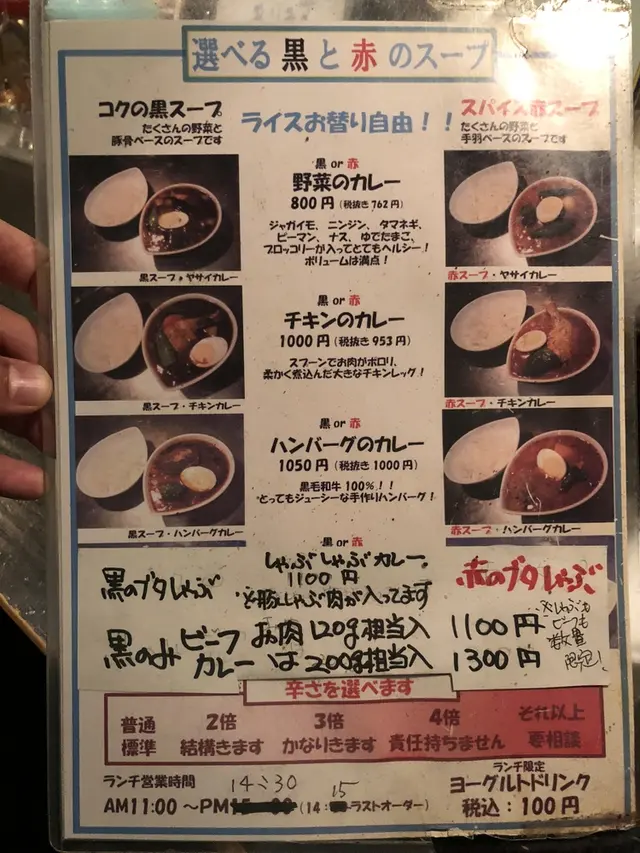 選べる 黒 と 赤 のスープ
コクの黒スープ
たくさんの野菜と
豚骨ベースのスープです
ライスお替り自由！！
スパイス赤スープ
たくさんの野菜と
手羽ベースのスープです
黒 or 赤
野菜のカレー
800円（税抜き762円）
ジャガイモ、ニンジン、タマネギ、
ピーマン、ナス、ゆでたまご、
ブロッコリーが入ってとてもヘルシー！
ボリュームは満点！
黒スープ・ヤサイカレー
赤スープ・ヤサイカレー
黒 or 赤
チキンのカレー
1000円（税抜き953円）
スプーンでお肉がポロリ、
柔かく煮込んだ大きなチキンレッグ！
黒スープ・チキンカレー
赤スープ・チキンカレー
黒 or 赤
ハンバーグのカレー
1050円（税抜き1000円）
黒毛和牛100%！！
とってもジューシーな手作りハンバーグ！
黒スープ・ハンバーグカレー
赤スープ・ハンバーグカレー
黒 or 赤
黒のブタしゃぶ
しゃぶしゃぶカレー。
1100円
豚しゃぶ肉が入ってます
赤のブタしゃぶ
黒のみ ビーフカレー
お肉120g相当入 1100円
は200g相当入 1300円
ビーフも
数量
限定！
辛さを選べます
普通 2倍 3倍 4倍 それ以上
標準 結構きます かなりきます 責任持ちません 要相談
ランチ営業時間
14:30
15
AM11:00 ～PM（14:ラストオーダー）
ランチ限定
ヨーグルトドリンク
税込：100円